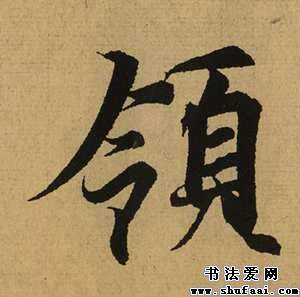 領
书法爱网
www.shufaai.com